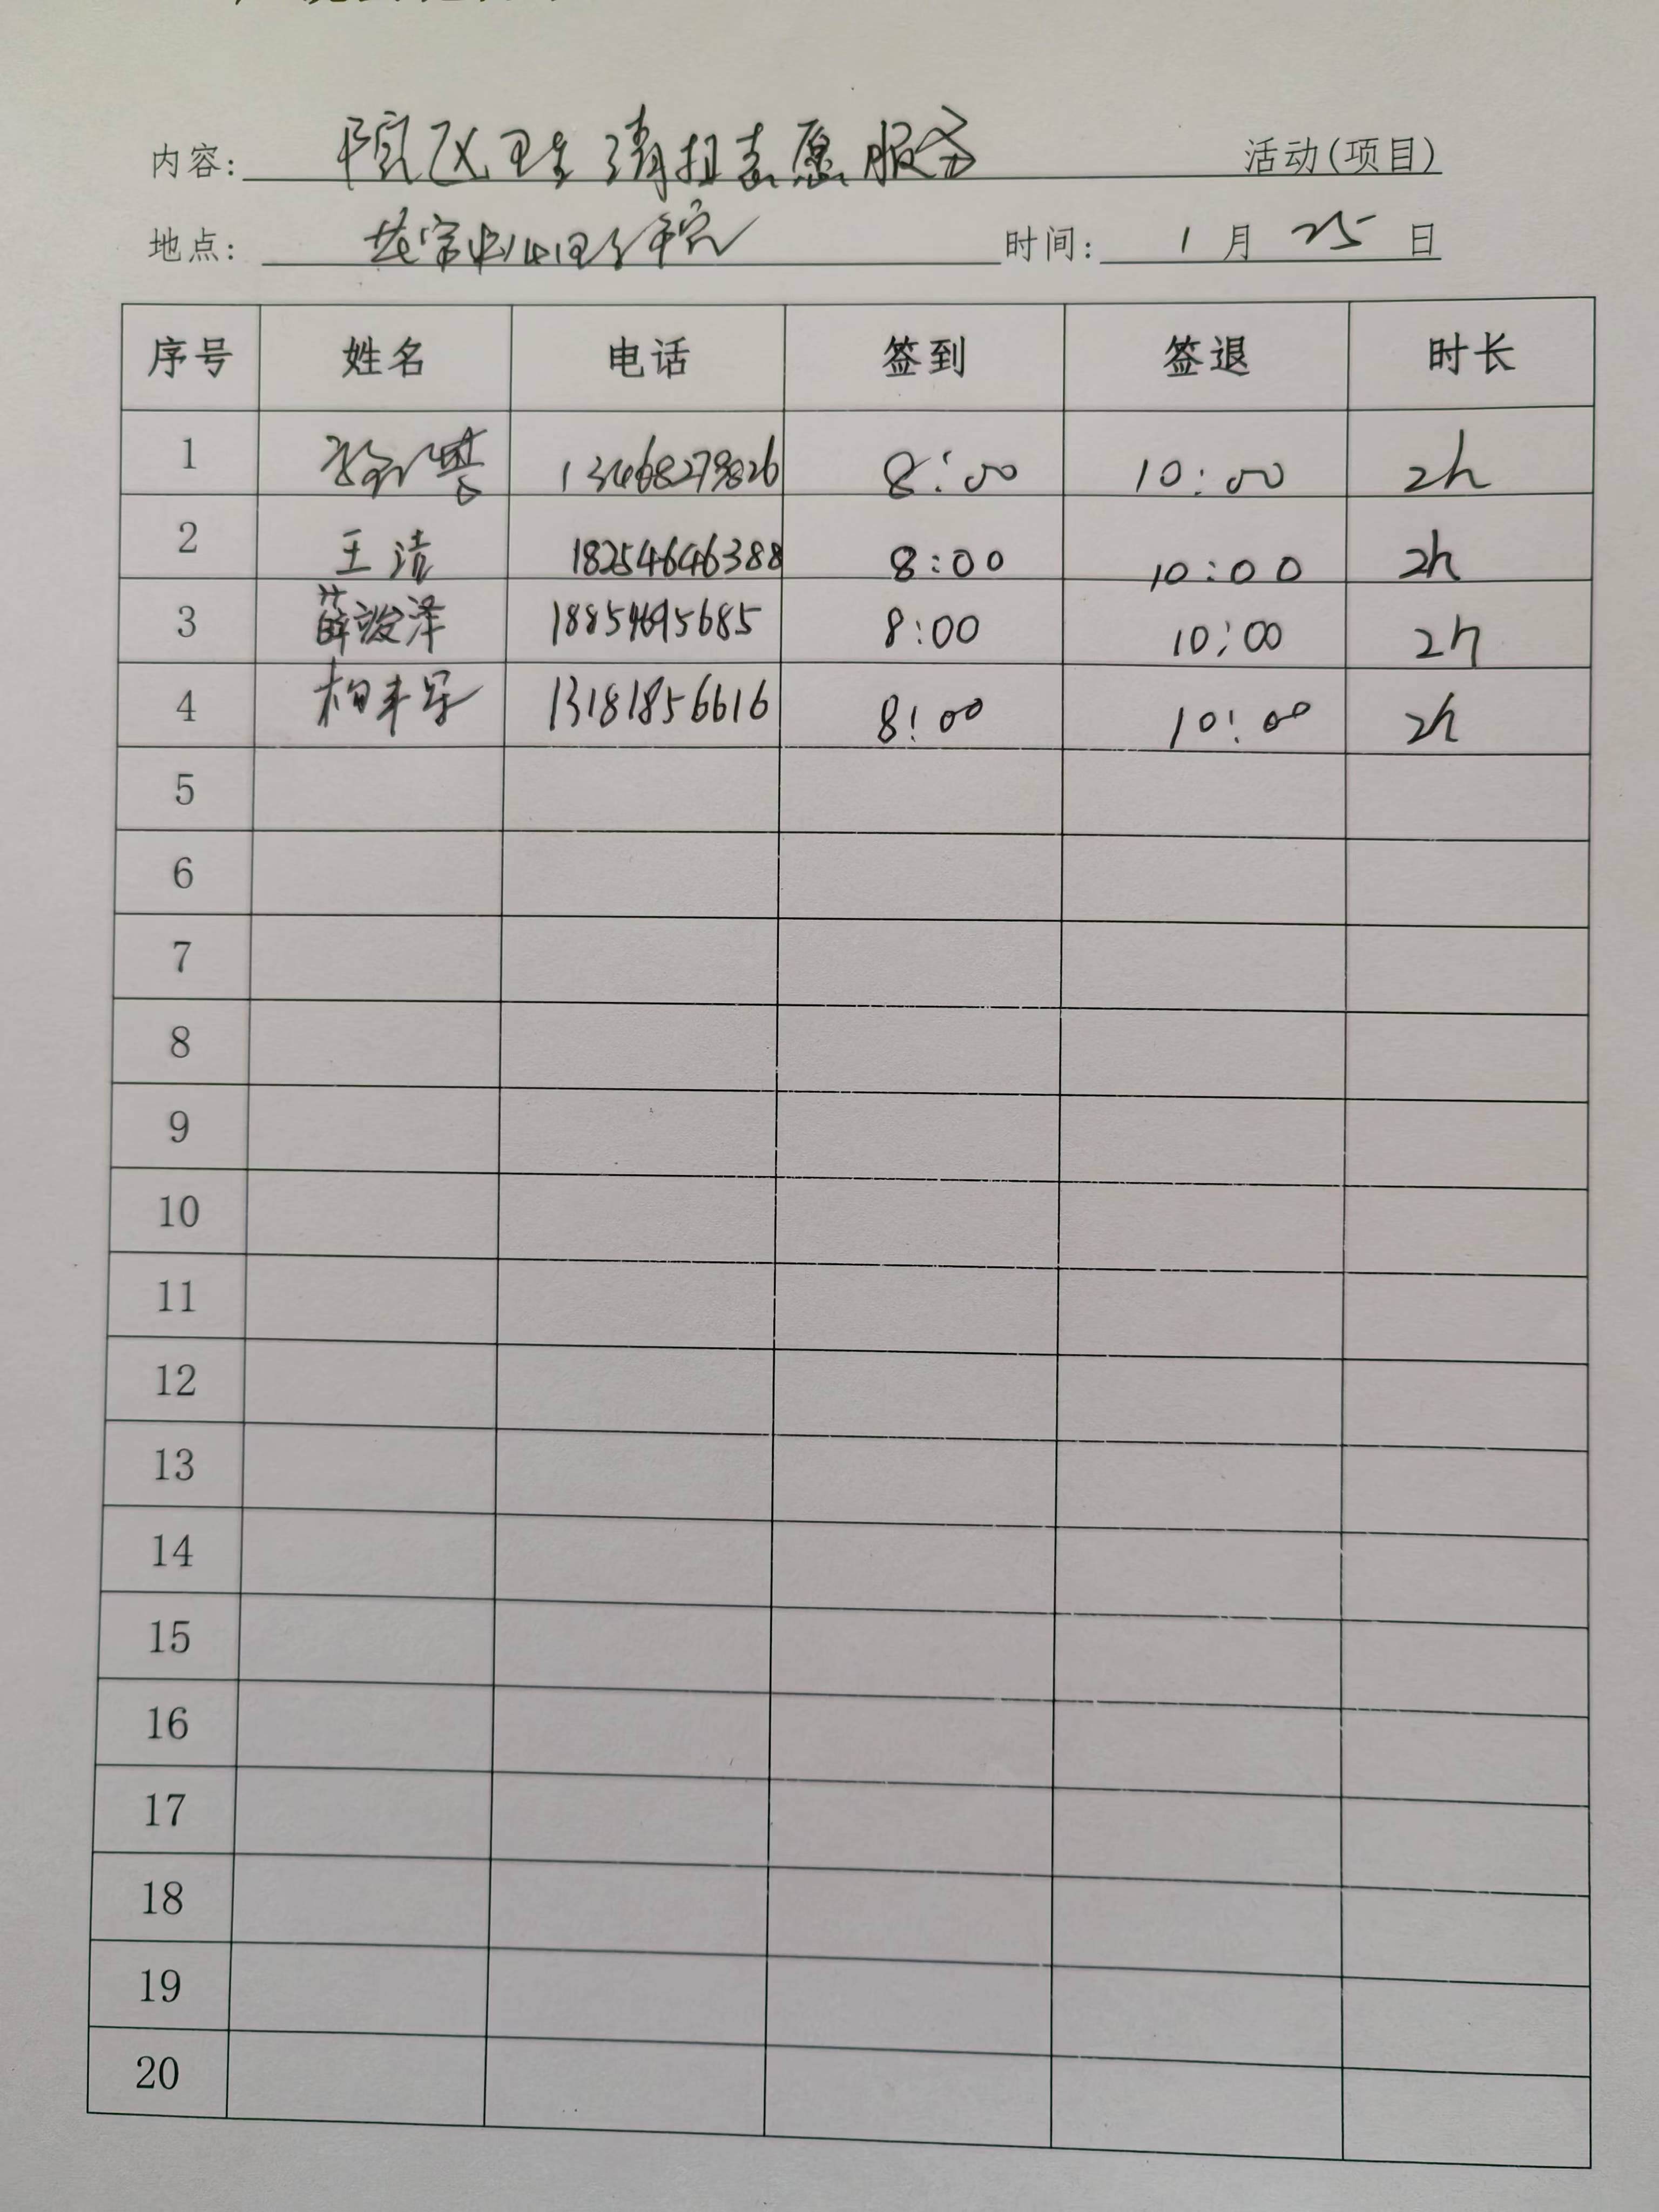 内容: 院区卫生清扫志愿服务 活动(项目)
地点: 时间: 1 月 25 日
序号 姓名 电话 签到 签退 时长
1 13468279826 8:00 10:00 2h
2 王洁 18254646388 8:00 10:00 2h
3 薛浚泽 8:00 10:00 2h
4 柏丰军 13181856616 8:00 10:00 2h
5
6
7
8
9
10
11
12
13
14
15
16
17
18
19
20